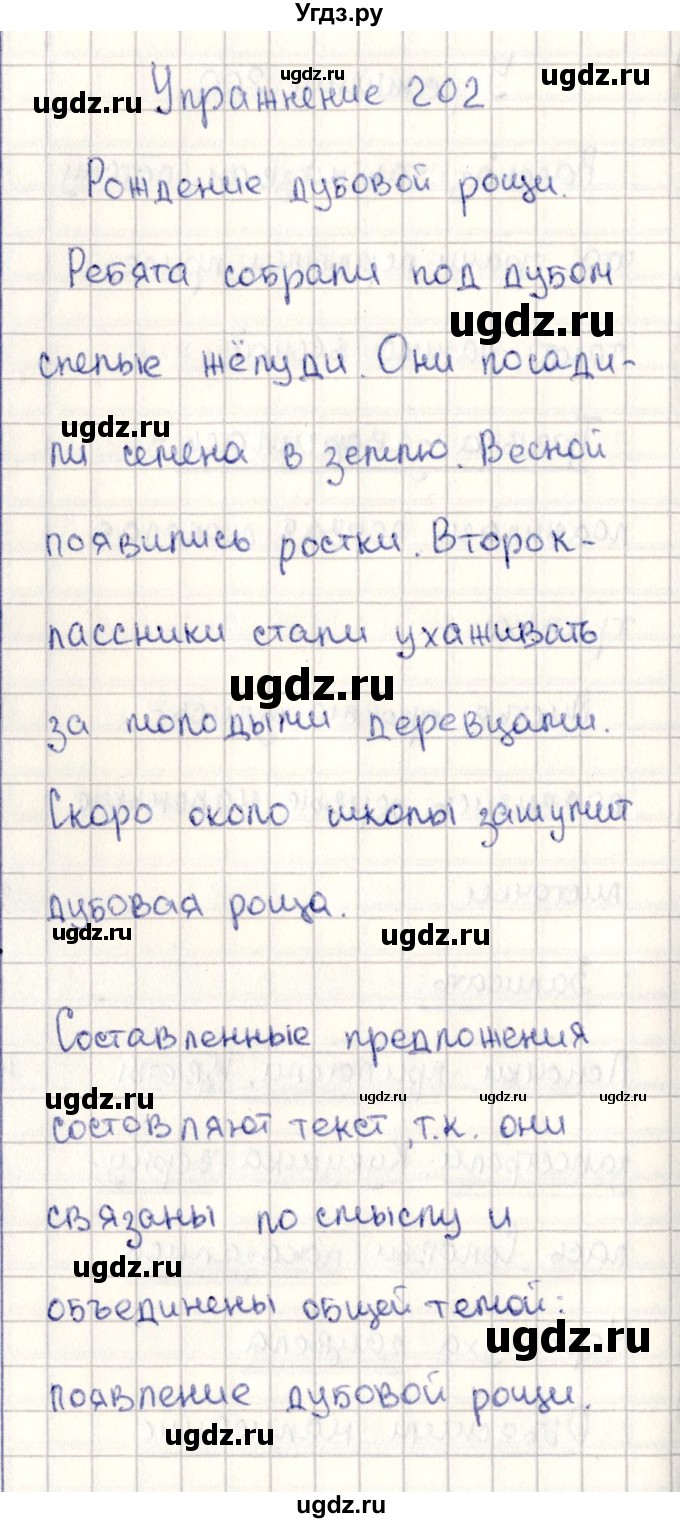 Угдз.ру
ugdz.ru
ugdz.ru
ugdz.ru
Упражнение 202
Рождение дубовой рощи.
Ребята собрали под дубом
ugdz.ru
спелые жёлуди. Они посади-
ugdz.ru
ли семена в землю. Весной
появились ростки. Второк-
лассники стали ухаживать
ugdz.ru
за молодыми деревцами.
Скоро около школы зашумит
дубовая роща.
ugdz.ru
ugdz.ru
Составленные предложения
ugdz.ru
ugdz.ru
ugdz.ru
ugdz.ru
составляют текст, т.к. они
связаны по смыслу и
ugdz.ru
объединены общей темой:
ugdz.ru
появление дубовой рощи.
ugdz.ru
ugdz.ru